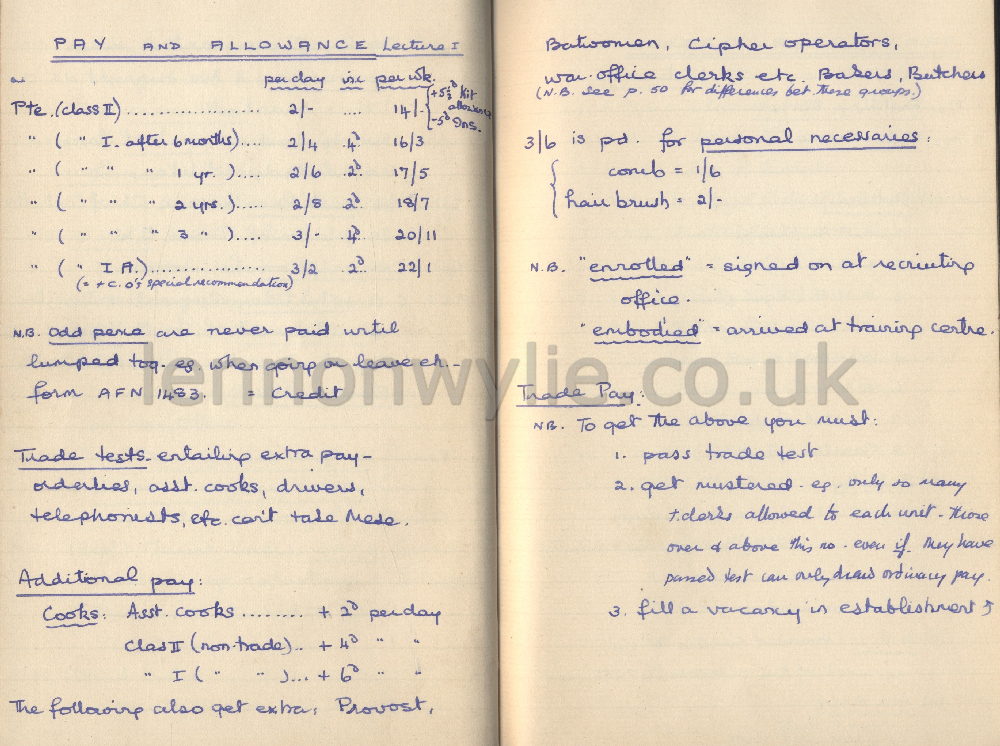 PAY AND ALLOWANCE Lecture I
per day inc per wk.
Pte. (class II) .................. 2/- .... 14/- { +5½d Kit allowance
-5d Ins.
" ( " I. after 6 months).... 2/4 4d. 16/3
" ( " " " 1 yr. ).... 2/6 2d. 17/5
" ( " " " 2 yrs. ).... 2/8 2d. 18/7
" ( " " " 3 " ).... 3/- 4d. 20/11
" ( " I A.)................ 3/2 2d. 22/1
(= + C.O's special recommendation)
N.B. Odd pence are never paid until
lumped tog. eg. when going on leave etc. -
form AFN 1483. = Credit
Trade tests - entailing extra pay -
orderlies, asst. cooks, drivers,
telephonists, etc. can't take these.
Additional pay:
Cooks: Asst. cooks ........ + 2d per day
Class II (non-trade).. + 4d " "
" I ( " " )... + 6d " "
The following also get extra: Provost,
Batwomen, Cipher operators,
war-office clerks etc. Bakers, Butchers
(N.B. see p. 50 for differences bet. these groups.)
3/6 is pd. for personal necessaries:
{ comb = 1/6
hair brush = 2/-
N.B. "enrolled" = signed on at recruiting
office.
"embodied" = arrived at training centre.
Trade Pay:
NB. To get the above you must:
1. pass trade test
2. get mustered - eg. only so many
clerks allowed to each unit - those
over & above this no. even if they have
passed test can only draw ordinary pay.
3. fill a vacancy in establishment
lennonwylie.co.uk